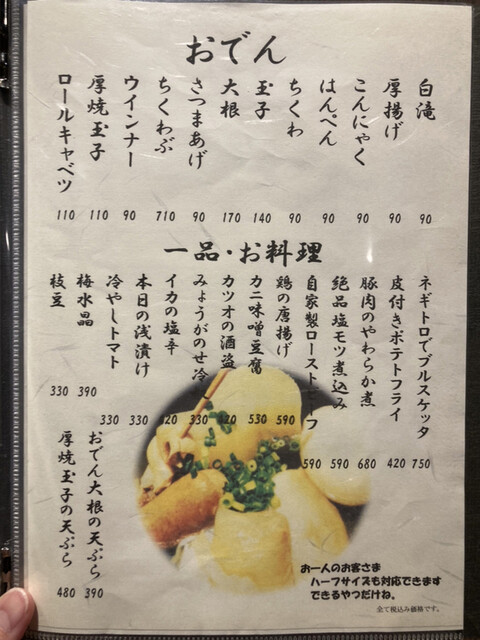 おでん
白滝 90
厚揚げ 90
こんにゃく 90
はんぺん 90
ちくわ 90
玉子 140
大根 170
さつまあげ 90
ちくわぶ 710
ウインナー 90
厚焼玉子 110
ロールキャベツ 110
一品・お料理
ネギトロでブルスケッタ 750
皮付きポテトフライ 420
豚肉のやわらか煮 680
絶品塩モツ煮込み 590
自家製ローストビーフ 590
鶏の唐揚げ 590
カニ味噌豆腐 530
カツオの酒盗
みょうがのせ冷 330
イカの塩辛
本日の浅漬け 330
冷やしトマト 330
梅水晶 390
枝豆 330
おでん大根の天ぷら 390
厚焼玉子の天ぷら 480
お一人のお客さま
ハーフサイズも対応できます
できるやつだけね。
全て税込み価格です。